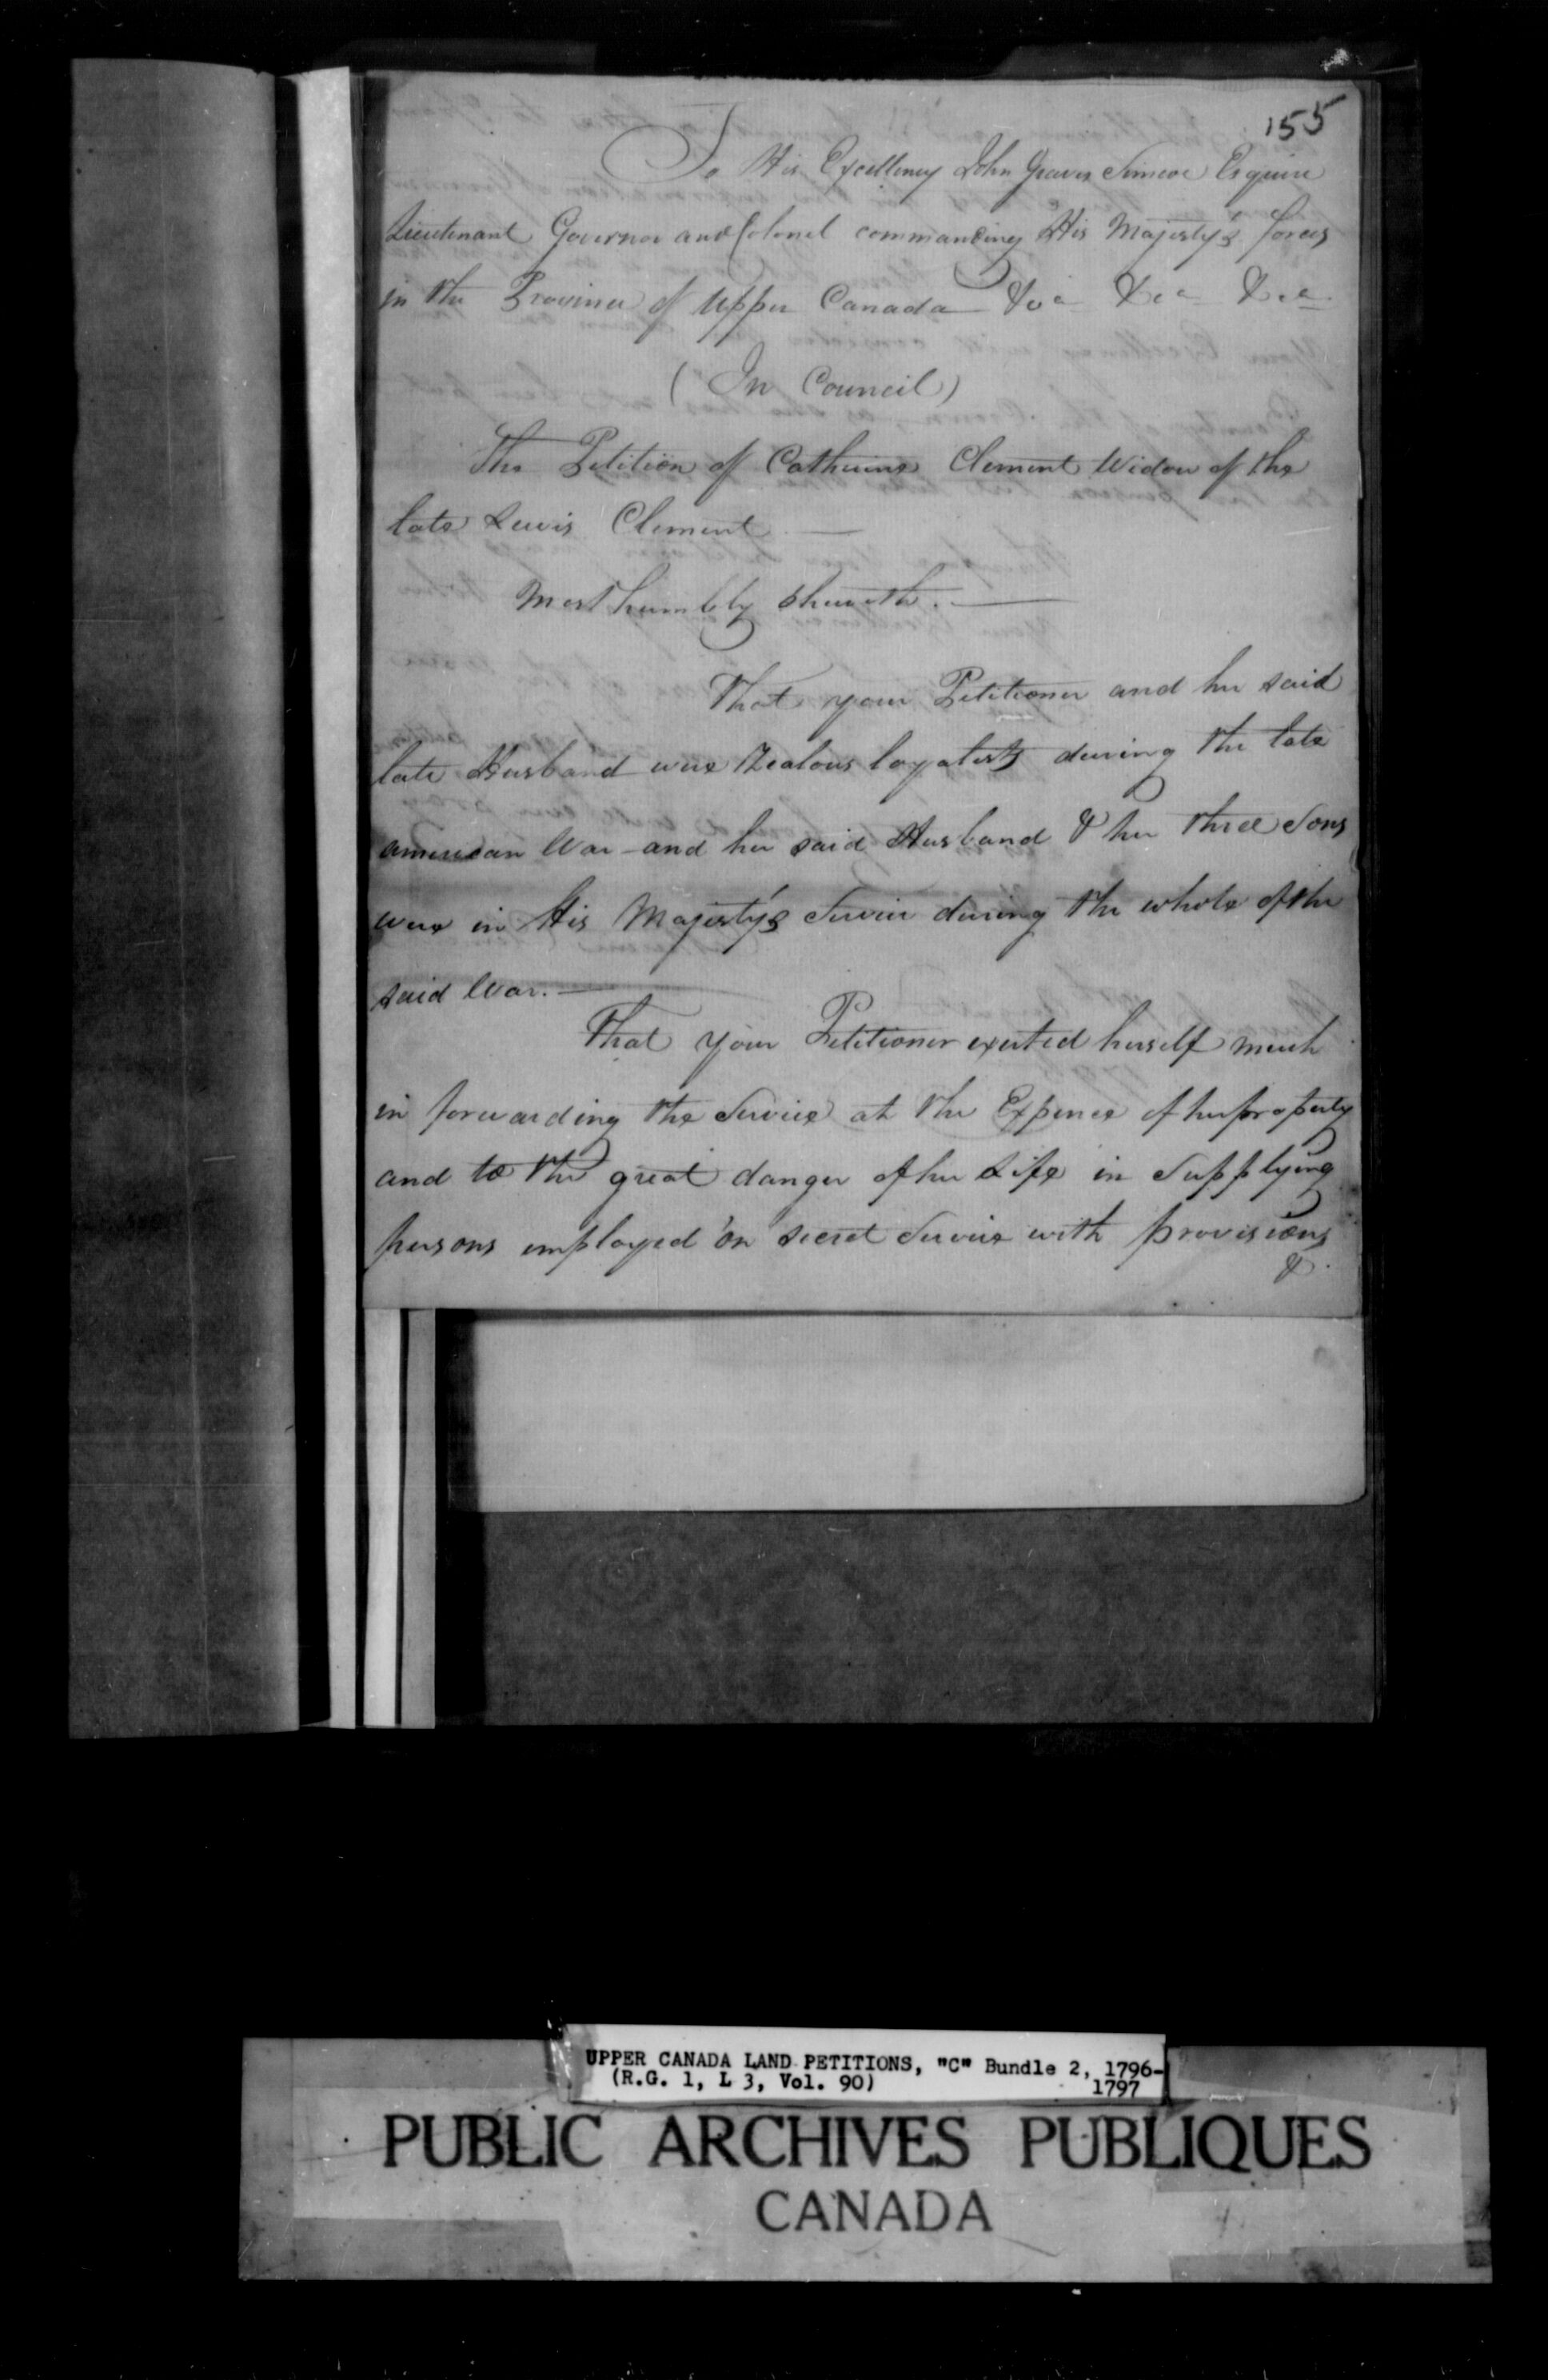 155
To His Excellency John Graves Simcoe Esquire
Lieutenant Governor and Colonel commanding His Majesty's forces
in the Province of Upper Canada &ca &ca &ca
(In Council)
The Petition of Catherine Clement Widow of the
late Lewis Clement
Most humbly sheweth.
That your Petitioner and her said
late Husband were Zealous loyalists during the late
american War and her said Husband & her three Sons
were in His Majesty's Service during the whole of the
said War.
That your Petitioner exerted herself much
in forwarding the Service at the Expence of her property
and to the great danger of her Life in Supplying
persons employed on secret Service with provisions
&
UPPER CANADA LAND PETITIONS, "C" Bundle 2, 1796-
(R.G. 1, L 3, Vol. 90) 1797
PUBLIC ARCHIVES PUBLIQUES
CANADA